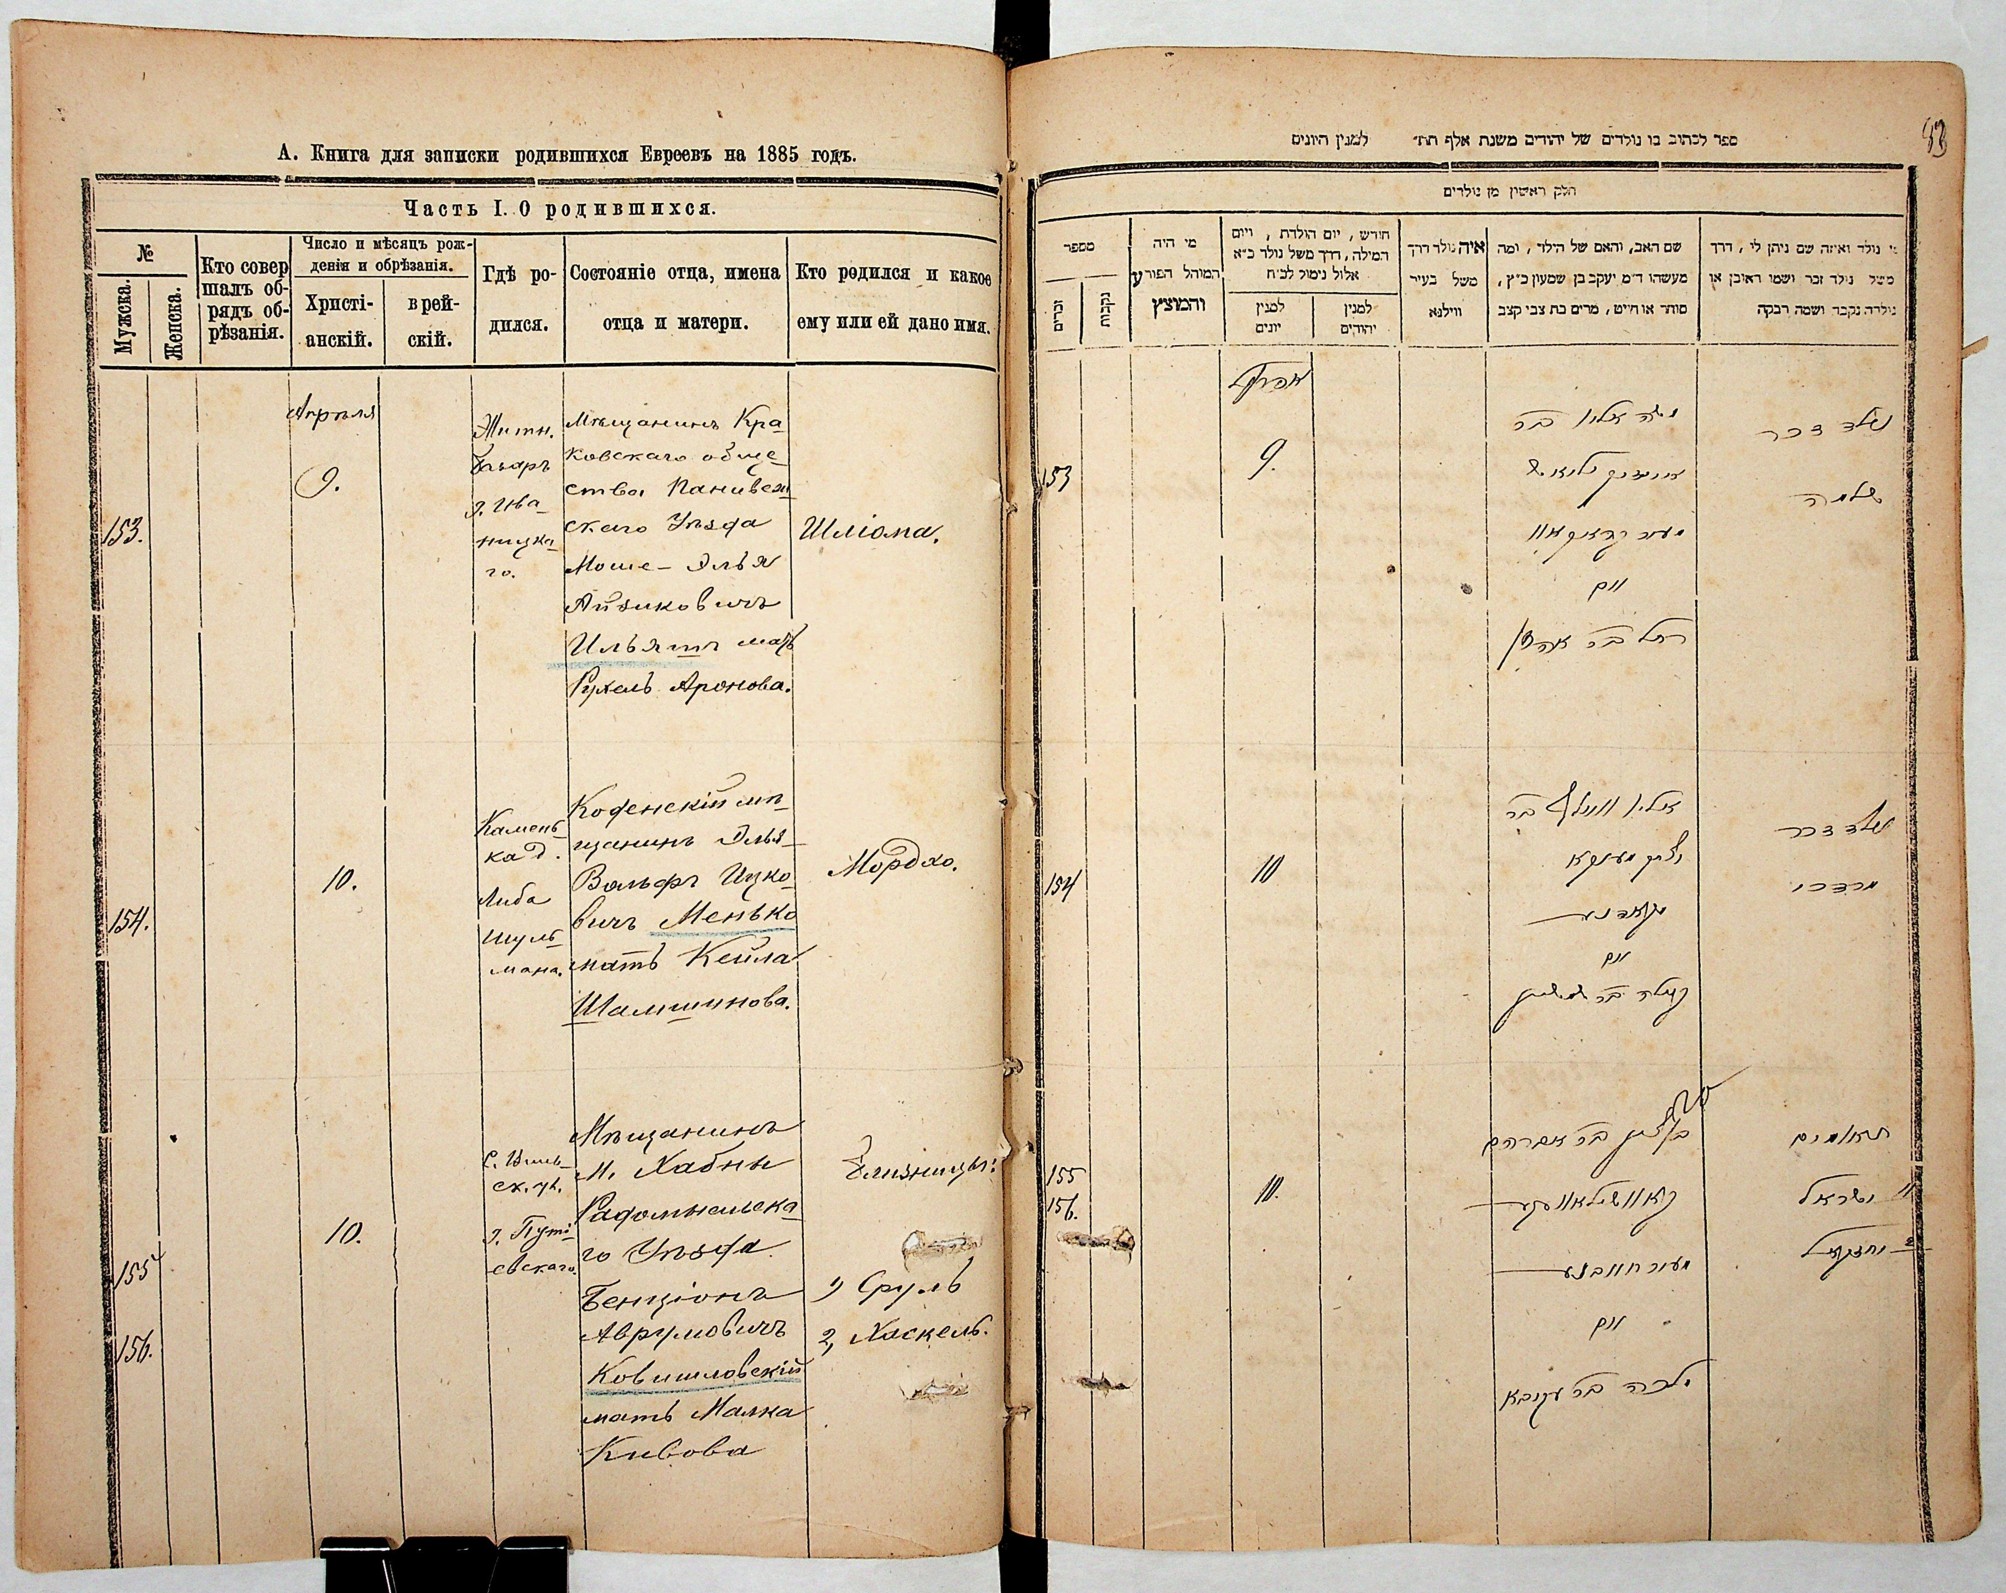 А. Книга для записки родившихся Евреевъ на 1885 годъ.
Часть I. О родившихся.
№
Мужска.
Женска.
Кто совер
шалъ об-
рядъ об-
рѣзанія.
Число и мѣсяцъ рож-
денія и обрѣзанія.
Христі-
анскій.
в рей-
скій.
Гдѣ ро-
дился.
Состояніе отца, имена
отца и матери.
Кто родился и какое
ему или ей дано имя.
153.
Апрѣля
9.
Житн.
базаръ
г. Ива
ницка
го.
Мѣщанинъ Кра
ковскаго обще
ства Паневеж
скаго Уѣзда
Моше-Элья
Айзиковичъ
Ильятъ мать
Рухель Аронова.
Шліома.
154.
10.
Камень
ка д.
Либа
Шуль
мана.
Коденскій мѣ
щанинъ Элья-
Вольфъ Ицко
вичъ Менько
мать Кейла
Шамшинова.
Мордхо.
155
156.
10.
г. Путі
евскаго.
Мѣщанинъ
м. Хабны
Радомысльска
го Уѣзда
Бенціонъ
Аврумовичъ
Ковшиловскій
мать Малка
Кивова
Близницы:
1, Сруль
2, Хаскель.
53
ספר לכתוב בו נולדים של יהודים משנת אלף תת״ למנין היונים
חלק ראשון מן נולדים
מספר
זכרים
נקבות
מי היה
המוהל הפורע
והמוצץ
חודש, יום הולדת, ויום
המילה, דרך משל נולד כ״א
אלול נימול לכ״ח
למנין
יונים
למנין
יהודים
איה נולד דרך
משל בעיר
ווילנא
שם האב, והאם של הילד, ומה
מעשהו ד״מ יעקב בן שמעון כ״ץ,
סוחר או חייט, מרים בת צבי קצב
מי נולד ואיזה שם ניתן לי, דרך
משל נולד זכר ושמו ראובן או
נולדה נקבה ושמה רבקה
153
אפריל
9.
משה אליו בר
אייזיק
ואם
רחל בת אהרן
נולד זכר
שלמה
154
10
אליו וואלף בר
איציק מענקא
ואם
קיילה בת שמשון
נולד זכר
מרדכי
155
156.
10.
בן ציון בר אברהם
ואם
מלכה בת עקיבא
תאומים
1 ישראל
2 יחזקאל